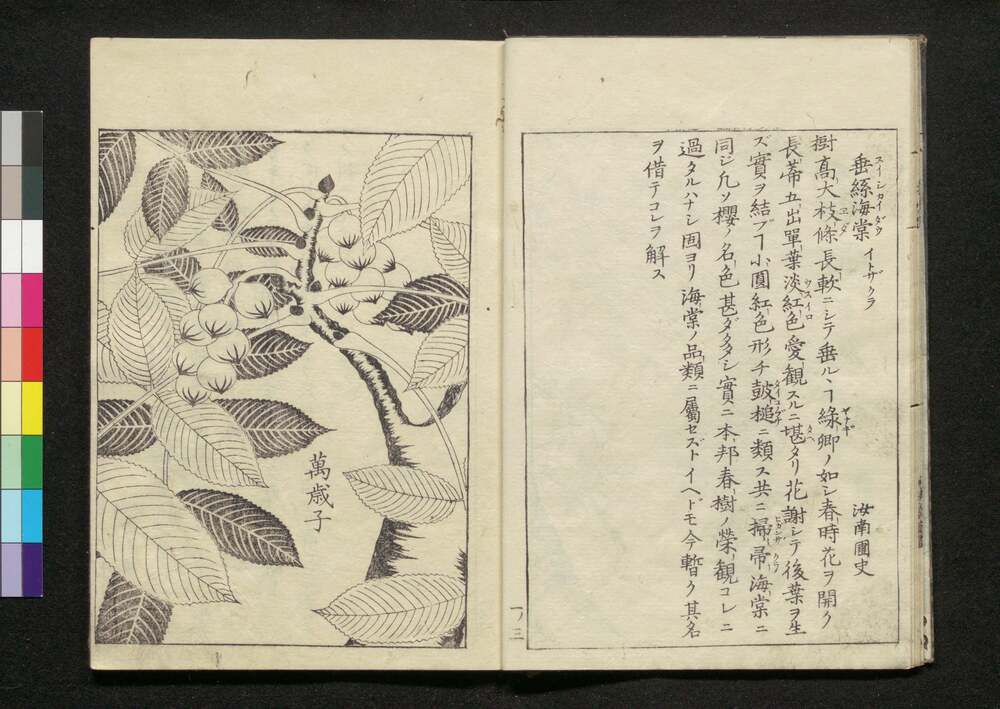 垂絲海棠 イトザクラ 汝南圃史
スーシカイダウ
樹高大枝條長軟ニシテ垂ルヽヿ綠卿ノ如シ春時花ヲ開ク
ヱダ
長蒂五出單葉淡紅色愛觀スルニ堪タリ花謝シテ後葉ヲ生
ウスイロ タヘ
ズ實ヲ結ブヿ小圓紅色形チ鼓槌ニ類ス共ニ掃帚海棠ニ
同ジ凡ソ櫻ノ名色甚ダ多シ實ニ本邦春樹ノ榮觀コレニ
過タルハナシ固ヨリ海棠ノ品類ニ屬セズトイヘドモ今暫ク其名
ヲ借テコレヲ解ス
萬歳子
一ノ三